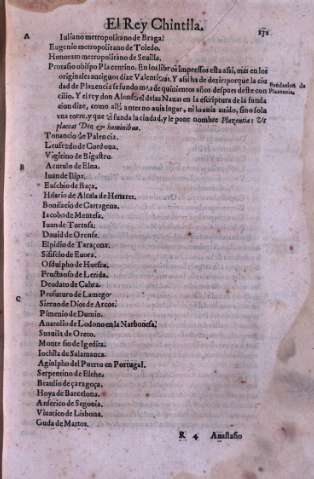 El Rey Chintila.
A
Iuliano metropolitano de Braga.
Eugenio metropolitano de Toledo.
Honorato metropolitano de Seuilla.
Protasio obispo Placentino. En los libros impressos esta assi, mas en los
originales antiguos dize Valentinus. Y assi ha de dezir porque la ciu
dad de Plazencia se fundo mas de quinientos años despues deste con
cilio. Y el rey don Alonso el de las Nauas en la escriptura de la funda
cion dize, como alli
y que el funda la ciudad, y le pone nombre Plazentia: Vt
placeat Deo & hominibus.
Fundacion de
Plazencia.
Tonancio de Palencia.
Leufredo de Cordoua.
Vigitino de Bigastro.
B
Acutulo de Elna.
Iuan de Ilipa.
Eusebio de Baça.
Hilario de Alcala de Henares.
Bonifacio de Cartagena.
Iacobo de Mentesa.
Iuan de Tortosa.
Dauid de Orense.
Elpidio de Taraçona.
Sisisclo de Euora.
Osdulpho de Huesca.
Fructuoso de Lerida.
Deodato de Cabra.
C
Profuturo de Lamego.
Pimenio de Dumio.
Anatolio de Lodono en la Narbonesa.
Suanila de Oreto.
Montesio de Igedita.
Iochila de Salamanca.
Agiolpho del Puerto en Portugal.
Serpentino de Elche.
Braulio de çaragoça.
Hoya de Barcelona.
Anserico de Segouia.
Viarico de Lisbona.
Guda de Martos.
R 4 Anastasio